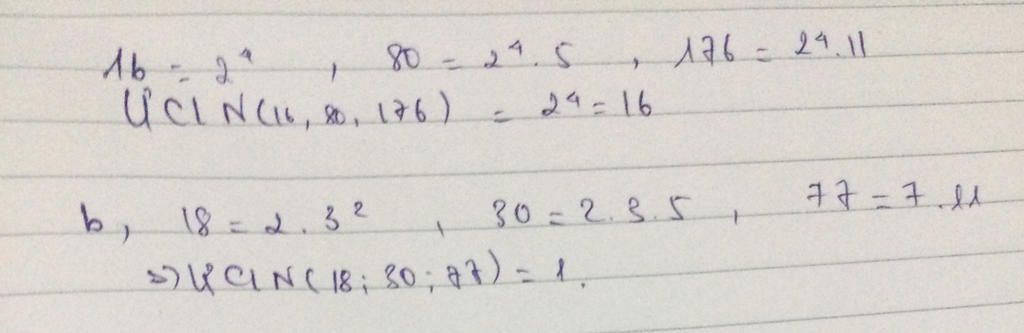 16 = 2⁴ , 80 = 2⁴. 5 , 176 = 2⁴. 11
ƯCLN(16, 80, 176) = 2⁴ = 16
b, 18 = 2. 3² , 30 = 2. 3. 5 , 77 = 7. 11
=> ƯCLN(18; 30; 77) = 1.